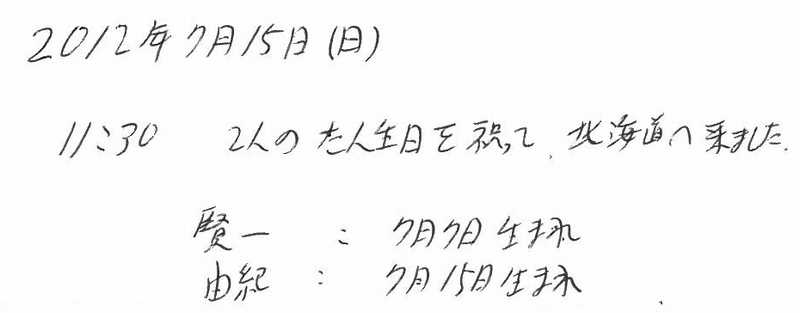 2012年7月15日(日)
11:30 2人のたん生日を祝って、北海道へ来ました.
賢一 : 7月7日生まれ
由紀 : 7月15日生まれ